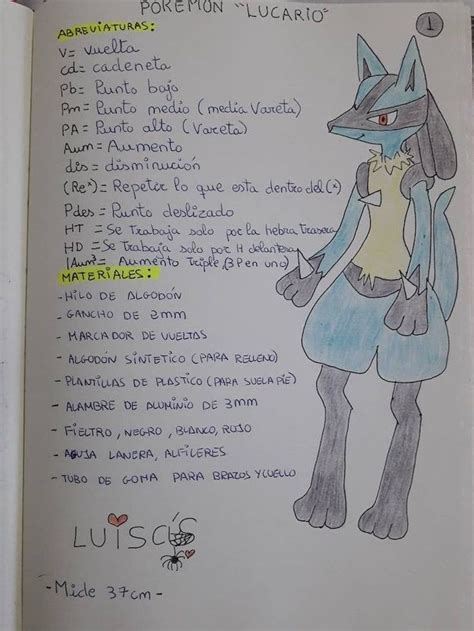 POKEMON "LUCARIO"
1
ABREVIATURAS:
V= Vuelta
cd= cadeneta
Pb= Punto bajo
Pm= Punto medio (media Vareta)
PA= Punto alto (Vareta)
Aum= Aumento
dis= disminución
(Re*)= Repetir lo que esta dentro del (*)
Pdes= Punto deslizado
HT =Se Trabaja solo por la hebra Trasera
HD =Se Trabaja solo por H delantera
1Aum³= Aumento Triple, (3 P en uno)
MATERIALES:
-HILO DE ALGODÓN
-GANCHO DE 2mm
-MARCADOR DE VUELTAS
-ALGODÓN SINTETICO (PARA RELLENO)
-PLANTILLAS DE PLASTICO (PARA SUELA PIE)
-ALAMBRE DE ALUMINIO DE 3mm
-FIELTRO, NEGRO, BLANCO, ROJO
-AGUJA LANERA, ALFILERES
-TUBO DE GOMA PARA BRAZOS Y CUELLO
-Mide 37cm-